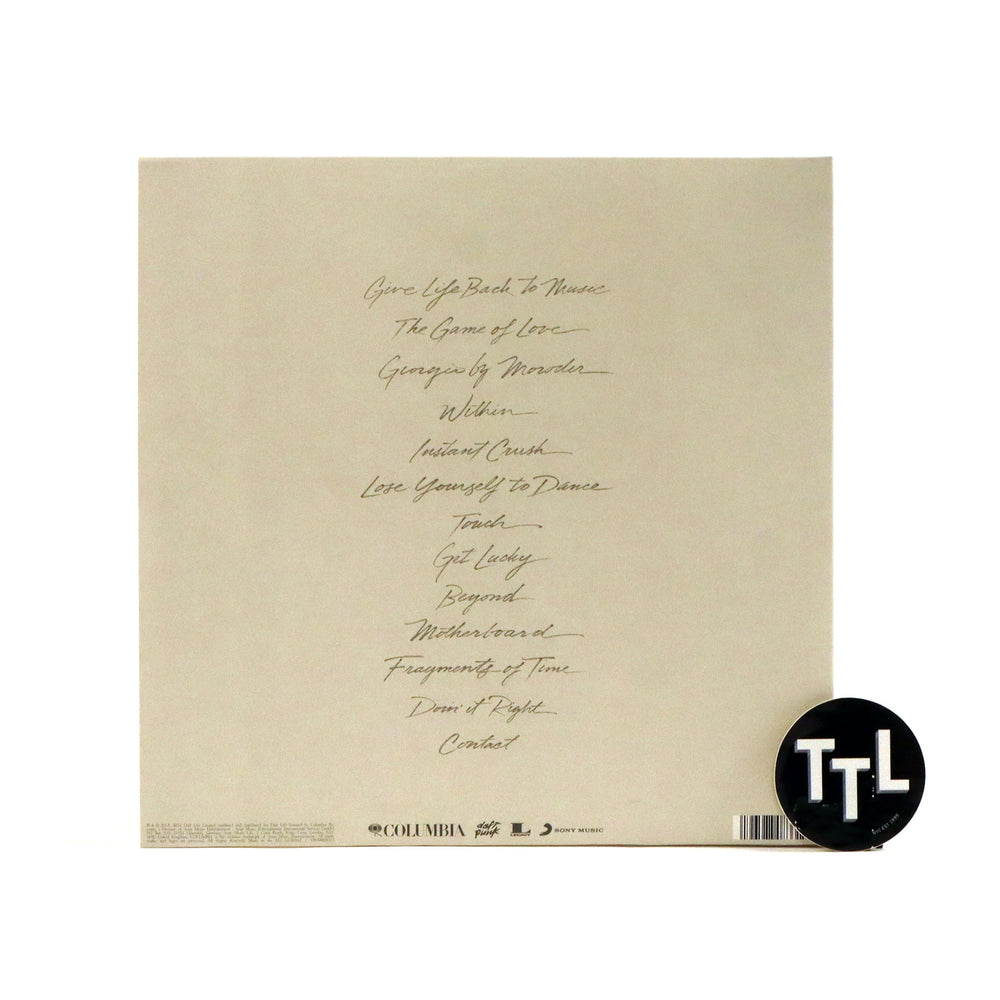 Give Life Back to Music
The Game of Love
Giorgio by Moroder
Within
Instant Crush
Lose Yourself to Dance
Touch
Get Lucky
Beyond
Motherboard
Fragments of Time
Doin' it Right
Contact
COLUMBIA
daft punk
L
LEGACY
SONY MUSIC
TTL